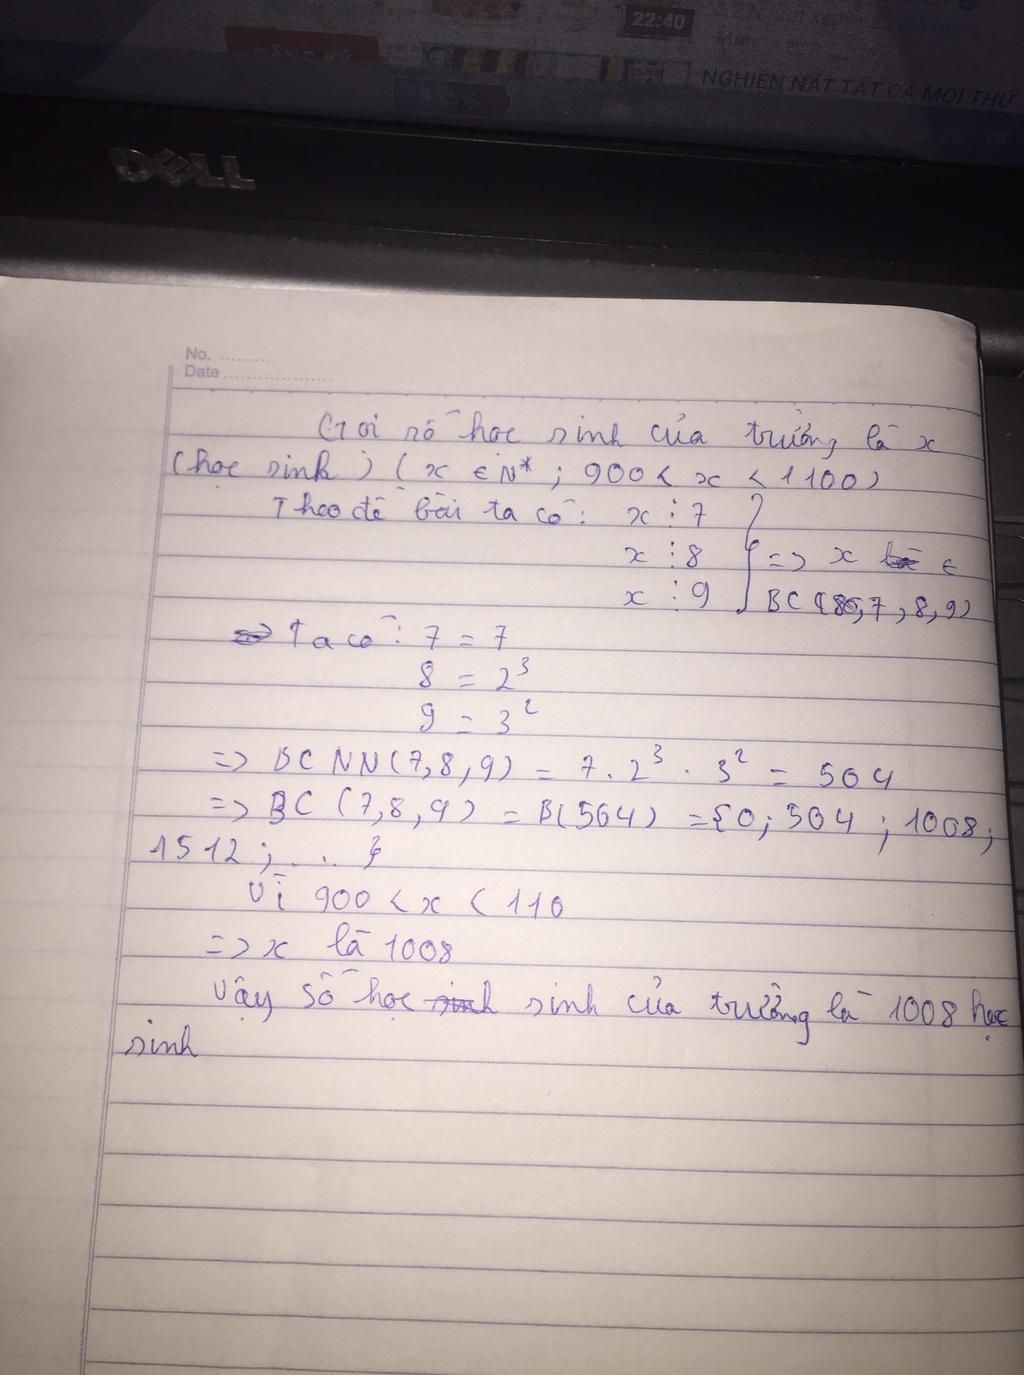 22:40
NGHIỀN NÁT TẤT CẢ MỌI THỨ
DELL
No. ..........
Date ..................
Gọi số học sinh của trường là x
(học sinh) (x ∈ N* ; 900 < x < 1100)
Theo đề bài ta có: x ⋮ 7
x ⋮ 8 => x ∈
x ⋮ 9 BC (7, 8, 9)
Ta có: 7 = 7
8 = 2³
9 = 3²
=> BCNN(7,8,9) = 7 . 2³ . 3² = 504
=> BC (7,8,9) = B(504) = {0; 504 ; 1008;
1512; . . . }
Vì 900 < x < 110
=> x là 1008
Vậy số học sinh của trường là 1008 học
sinh